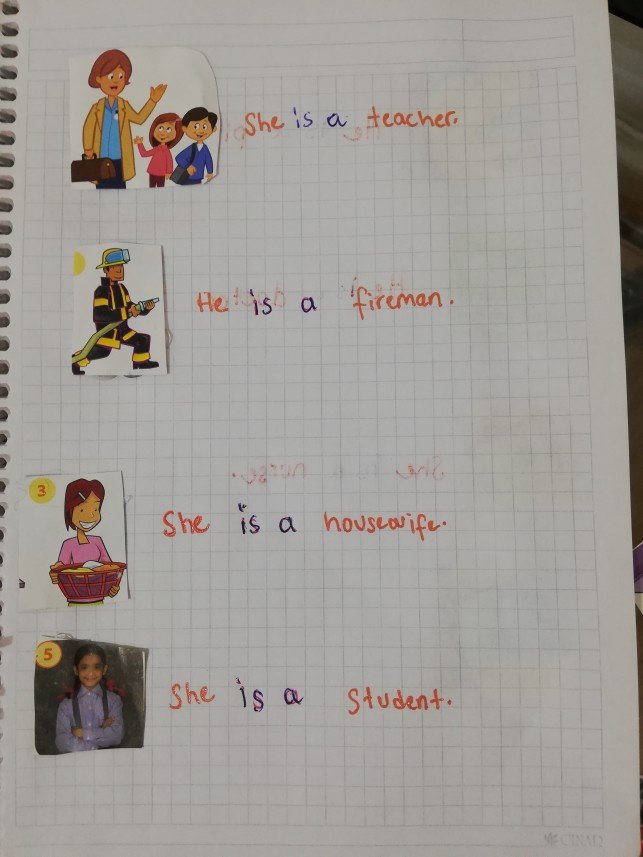 She is a teacher.
He is a fireman.
3
She is a housewife.
5
She is a student.